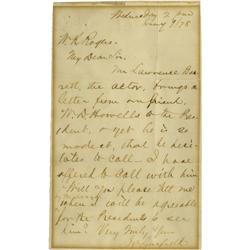 Wednesday 2
W. K. Rogers.
My Dear Sir.
Mr Lawrence Bar-
rett, the actor, brings a
letter from our friend
W. D. Howells to the Pres-
ident, & yet he is so
modest, that he hesi-
tates to call – I have
offered to call with him
Will you please tell me
when it will be agreeable
for the President to see
him? Very truly Yours